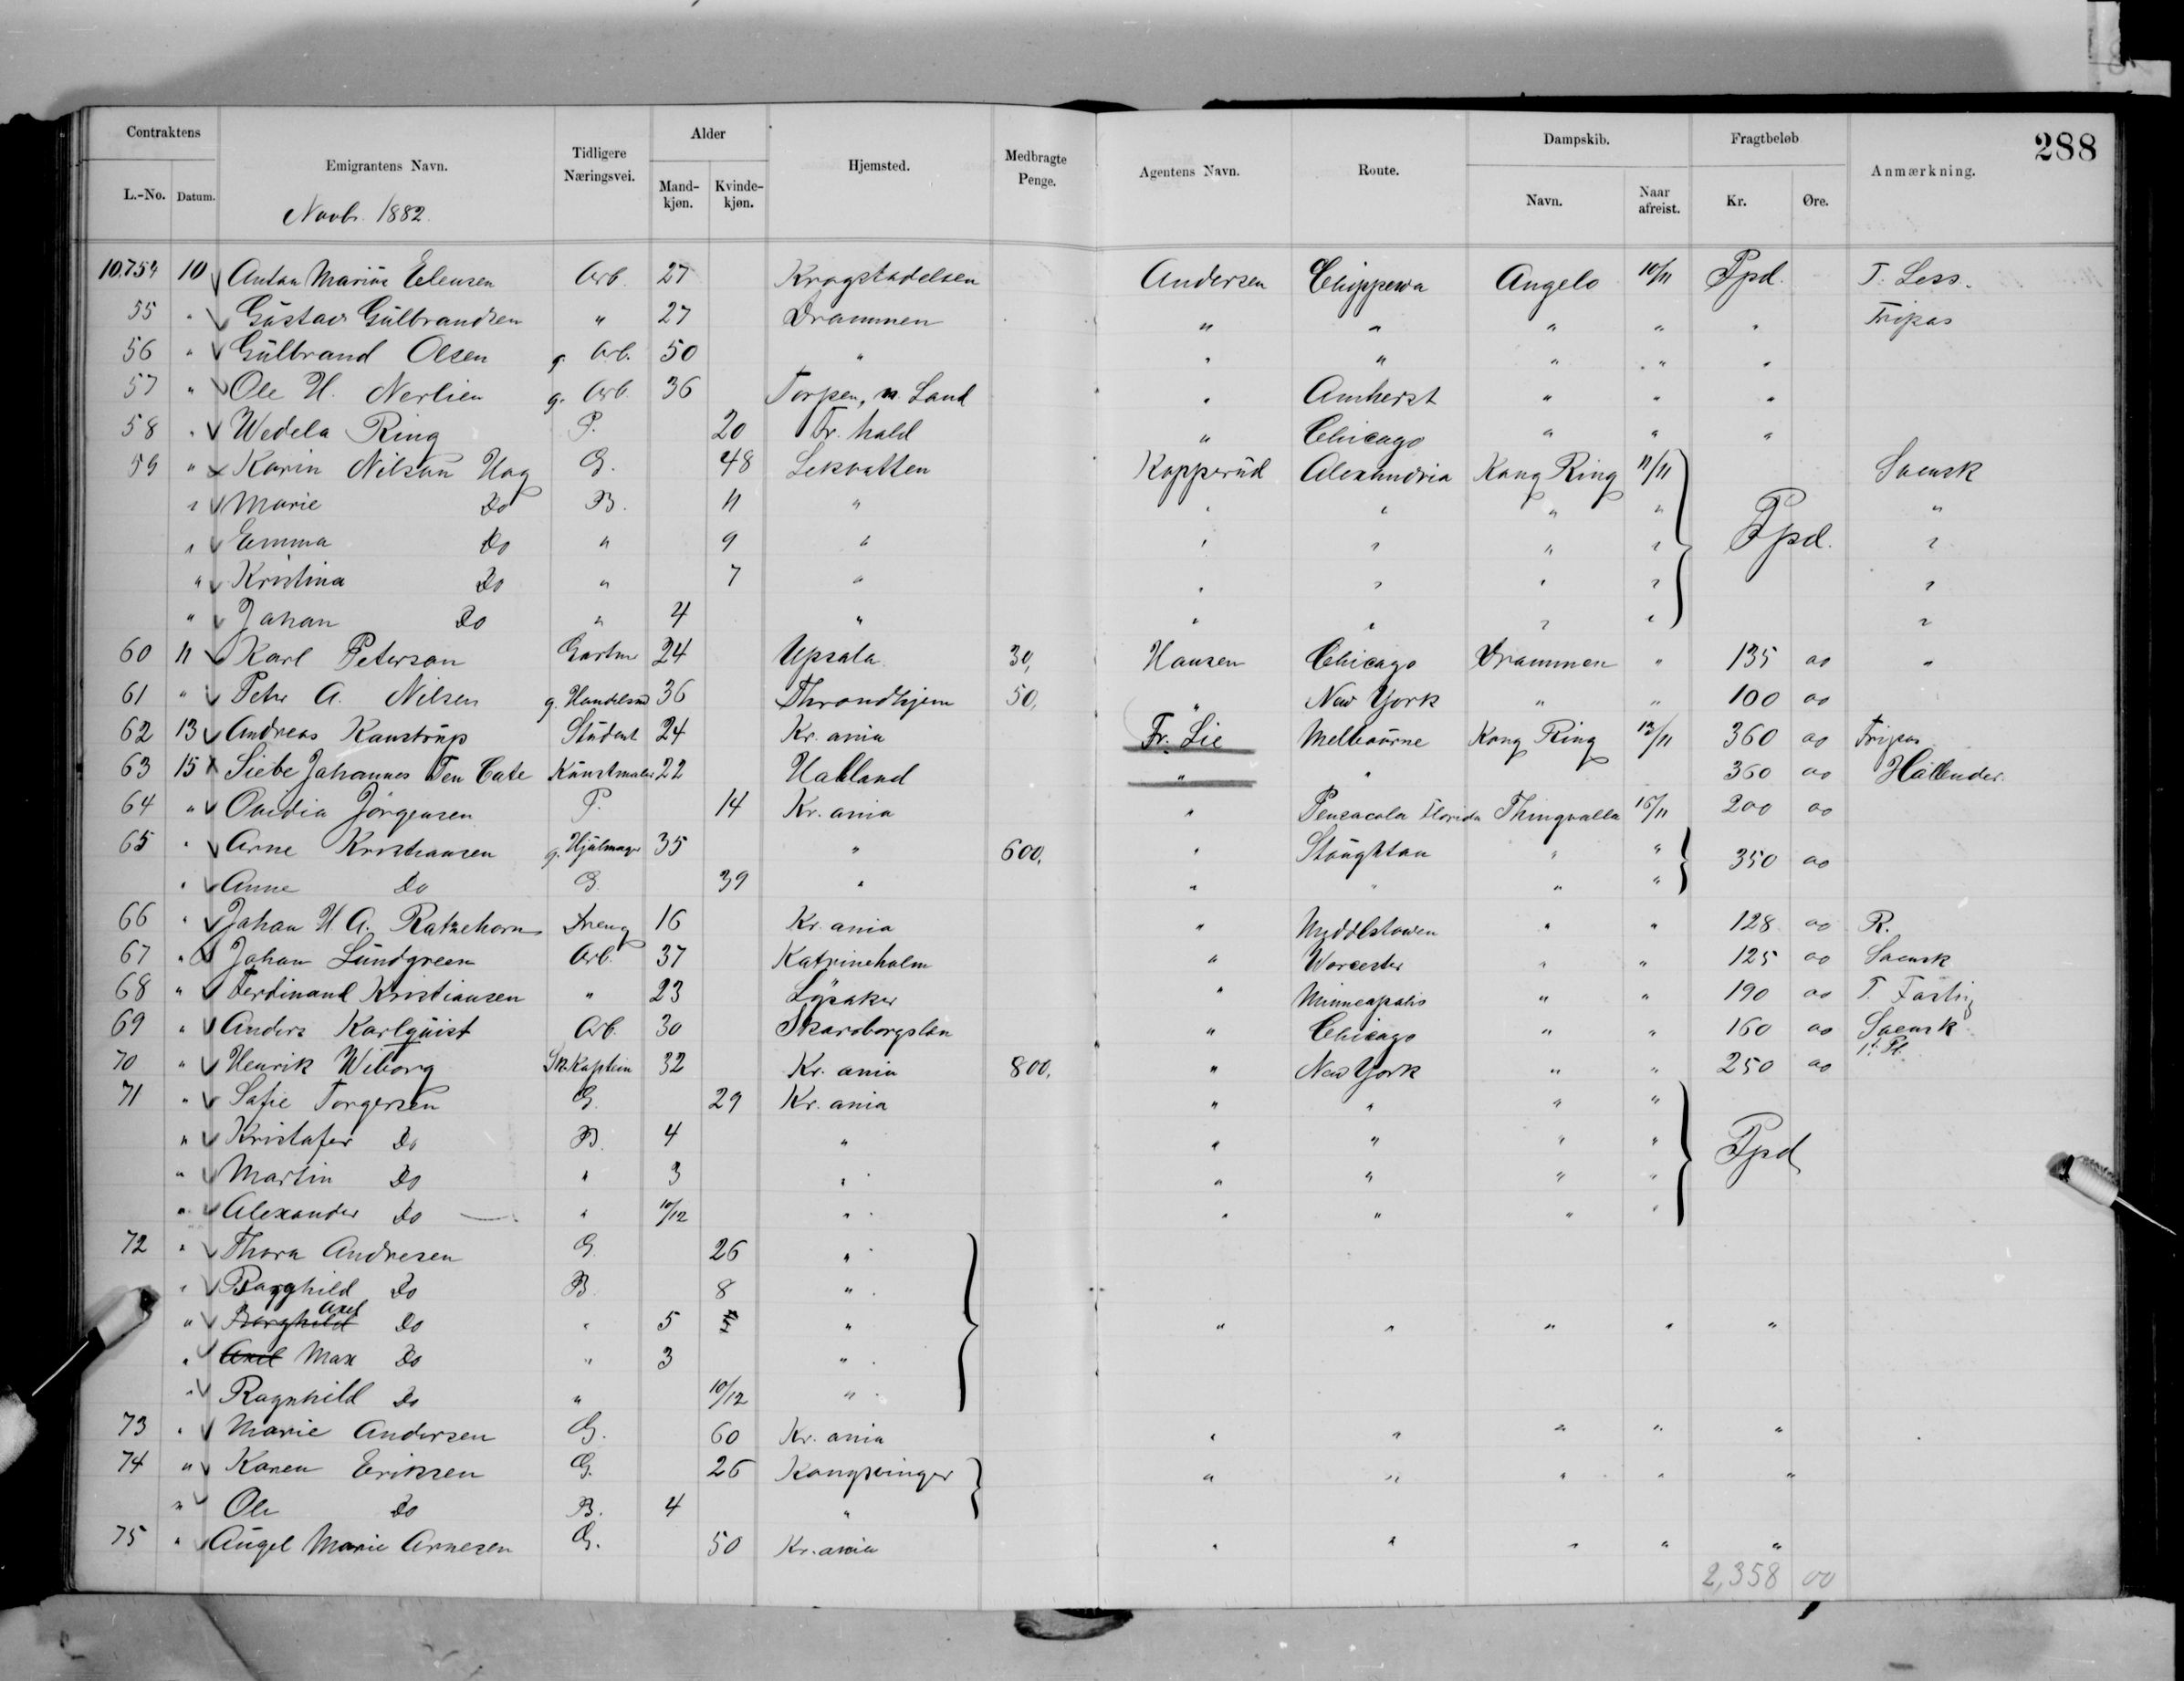 288
Contraktens | Emigrantens Navn. | Tidligere Næringsvei. | Alder | Hjemsted. | Medbragte Penge. | Agentens Navn. | Route. | Dampskib. | Fragtbeløb | Anmærkning.
L.-No. | Datum. | Mand-kjøn. | Kvinde-kjøn. | Navn. | Naar afreist. | Kr. | Øre.
Novbr. 1882.
10.754 10 Anton Marius Elensen Arb. 27 Kragstadelsen Andersen Chippewa Angelo 10/11 Ppd. T. Less.
55 " Gustav Gulbrandsen " 27 Drammen " " " " " Fripas
56 " Gulbrand Olsen g. Arb. 50 " " " " " "
57 " Ole H. Nerlien g. Arb. 36 Torpen, n. Land " Amherst " " "
58 " Wedela Ring P. 20 Fr. hald " Chicago " " "
59 " Karin Nilson Hag G. 48 Lekvatten Kopperud Alexandria Kong Ring 11/11 Svensk
" Marie Do B. 11 " " " " " Ppd. "
" Emma Do " 9 " " " " " "
" Kristina Do " 7 " " " " " "
" Johan Do " 4 " " " " " "
60 11 Karl Peterson Gartner 24 Upsala 30, Hansen Chicago Drammen " 135 00 "
61 " Peter A. Nilsen g. Handelsm 36 Throndhjem 50, " New York " " 100 00
62 13 Andreas Kanstrup Student 24 Kr. ania Fr. Lie Melbourne Kong Ring 13/11 360 00 Fripas
63 15 Siebe Johannes Ten Cate Kunstmaler 22 Holland " " 360 00 Hollender.
64 " Ovidia Jörgensen P. 14 Kr. ania " Pensacola Florida Thingvalla 15/11 200 00
65 " Arne Kristiansen g. Hjulmager 35 " 600, " Stoughton " " 350 00
" Anne Do G. 39 " " " " "
66 " Johan H. A. Ratzehorn Dreng 16 Kr. ania " Myddlstowen " " 128 00 R.
67 " Johan Lundgreen Arb. 37 Katrineholm " Worcester " " 125 00 Svensk
68 " Ferdinand Kristiansen " 23 Lysaker " Minneapolis " " 190 00 T.
69 " Anders Karlquist Arb. 30 Skaraborgslen " Chicago " " 160 00 Svensk
70 " Henrik Wiborg Sk. Kaptein 32 Kr. ania 800, " New York " " 250 00 1ste Pl.
71 " Sofie Torgersen G. 29 Kr. ania " " " "
" Kristofer Do B. 4 " " " " " Ppd
" Martin Do " 3 " " " " "
" Alexander Do " 10/12 " " " " "
72 " Thora Andresen G. 26 "
" Borghild Do B. 8 "
" Borghild Axel Do " 5 " " " " " "
" Axel Max Do " 3 "
" Ragnhild Do " 10/12 "
73 " Marie Andersen G. 60 Kr. ania " " " " "
74 " Karen Eriksen G. 26 Kongsvinger " " " " "
" Ole Do B. 4 "
75 " Angel Marie Arnesen G. 50 Kr. ania " " " " "
2,358 00